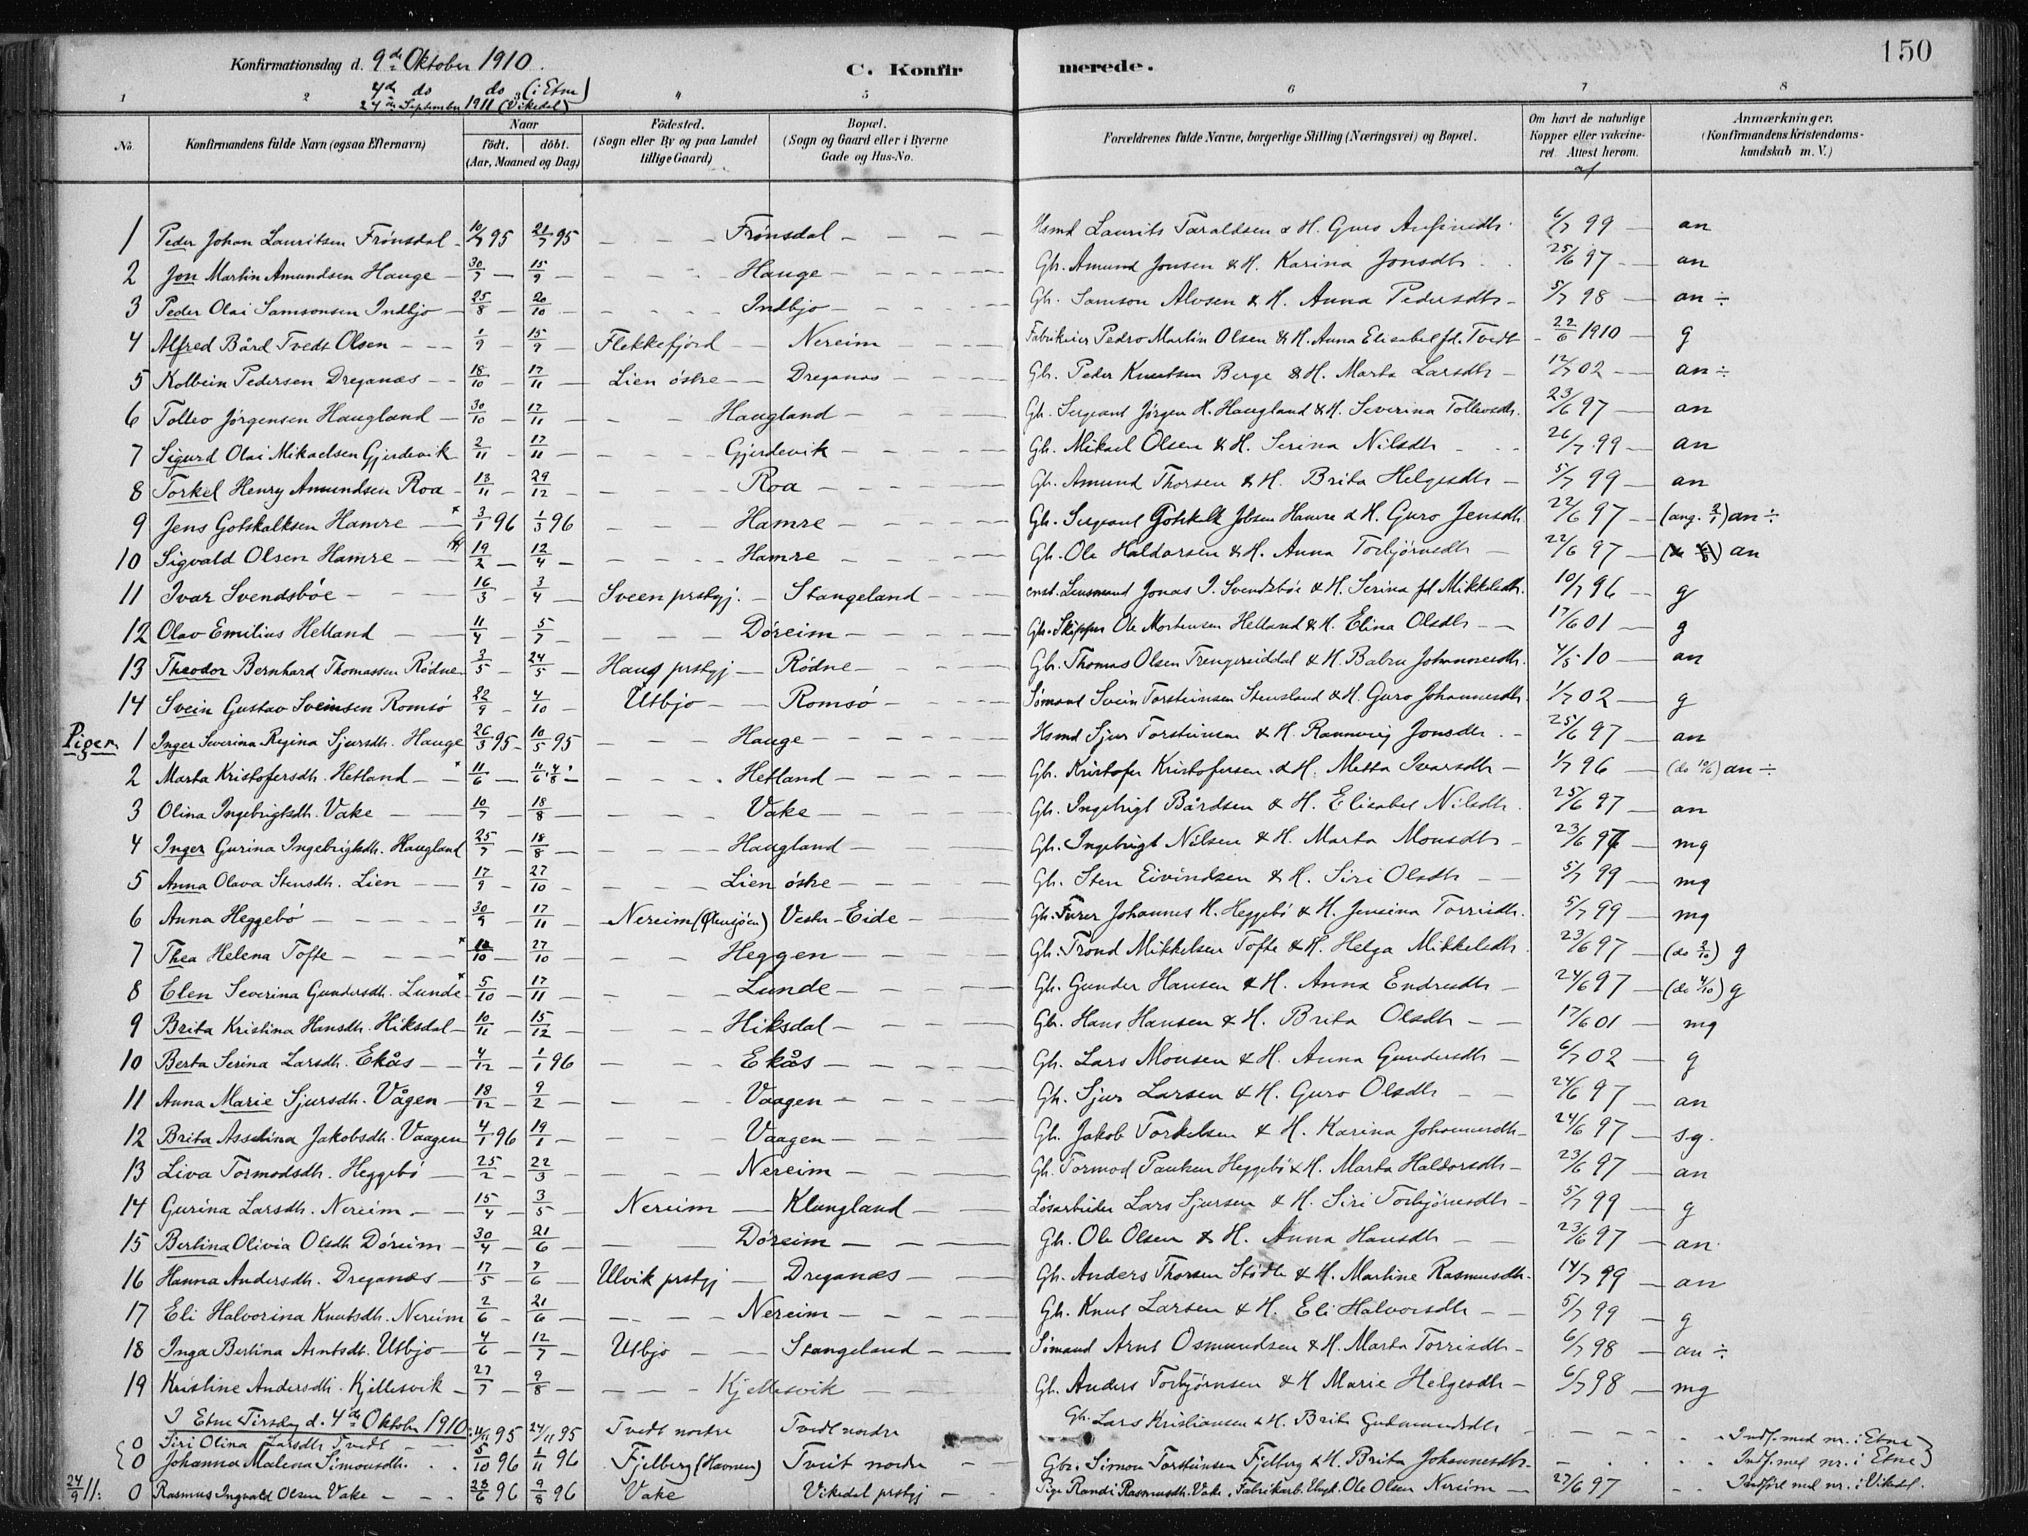 150
Konfirmationsdag d. 9de Oktober 1910.
4de do do (i Etne)
24de September 1911 (Vikedal)
C. Konfirmerede.
1 2 3 4 5 6 7 8
No. Konfirmandens fulde Navn (ogsaa Efternavn) Naar født. døbt. (Aar, Maaned og Dag) Fødested. (Sogn eller By og paa Landet tillige Gaard) Bopæl. (Sogn og Gaard eller i Byerne Gade og Hus-No. Forældrenes fulde Navne, borgerlige Stilling (Næringsvei) og Bopæl. Om havt de naturlige Kopper eller vakcineret. Attest herom. af Anmærkninger. (Konfirmandens Kristendomskundskab m. V.)
1 Peder Johan Lauritsen Frønsdal 10/7 95 21/7 95 — Frønsdal — Hsmd Laurits Taraldsen & H. Guro Anfinsdtr. 6/7 99 — an
2 Jon Martin Amundsen Hauge 30/7 — 15/9 — Hauge — Gb. Amund Jonsen & H. Karina Jonsdtr 25/6 97 — an
3 Peder Olai Samsonsen Indbjo 25/8 — 20/10 — Indbjo — Gb. Samson Alvsen & H. Anna Pedersdtr — 5/7 98 — an ÷
4 Alfred Bård Tvedt Olsen 1/9 — 15/9 — Flekkefjord — Nereim — Fabrikeier Pedro Martin Olsen & H. Anna Elisabet fd. Tvedt 22/6 1910 — g
5 Kolbein Pedersen Dreganæs 18/10 — 17/11 — Lien østre — Dreganæs — Gb. Peder Knutsen Berge & H. Marta Larsdtr — 12/7 02 — an ÷
6 Tollev Jørgensen Haugland 30/10 — 17/11 — Haugland — Gb. Sergeant Jørgen H. Haugland & H. Severina Tollevsdtr. 23/6 97 — an
7 Sigurd Olai Mikaelsen Gjerdevik 2/11 — 17/11 — Gjerdevik — Gb. Mikael Olsen & H. Serina Nilsdtr 26/7 99 — an
8 Torkel Henry Amundsen Roa 13/11 — 29/12 — Roa — Gb. Amund Thorsen & H. Brita Helgesdtr — 5/7 99 — an
9 Jens Gotskalksen Hamre * 3/1 96 1/3 96 — Hamre — Gb. Sergeant Gotskalk Jensen Hamre & H. Guro Jensdtr. 22/6 97 — (ang. 2/1) an ÷
10 Sigvald Olsen Hamre 19/2 — 12/4 — Hamre — Gb. Ole Haldorsen & H. Anna Torbjørnsdtr — 22/6 97 — an
11 Ivar Svendsbøe 16/3 — 3/4 — Sveen prstgj. — Stangeland — const. Lensmand Jonas I. Svendsbøe & H. Serina fd Mikkelsdtr. 10/7 96 — g
12 Olav Emilius Helland 11/4 — 5/7 — Døreim — Gb. Skipper Ole Mortensen Helland & H. Elina Olsdtr — 17/6 01 — g
13 Theodor Bernhard Thomassen Rødne 3/5 — 24/5 — Haus prstgj — Rødne — Gb. Thomas Olsen Trengereiddal & H. Babra Johannesdtr. 4/5 10 — an
14 Svein Gustav Sveinsen Romsø 22/9 — 4/10 — Utbjo — Romsø — Sømand Svein Torsteinsen Stensland & H. Guro Johannesdtr. 1/7 02 — g
Piger.
1 Inger Severina Regina Sjursdtr. Hauge 26/3 95 10/5 95 — Hauge — Hsmd Sjur Torsteinsen & H. Rannveig Jonsdtr. — 25/6 97 — an
2 Marta Kristofersdtr. Hetland * 11/6 — 11/6 · 4/8 — Hetland — Gb. Kristofer Kristofersen & H. Metta Ivarsdtr — 1/7 96 — (do 10/6) an ÷
3 Olina Ingebrigtsdtr. Vake 10/7 — 18/8 — Vake — Gb. Ingebrigt Bårdsen & H. Elisabet Nilsdtr. 25/6 97 — an
4 Inger Gurina Ingebrigtsdtr. Haugland 25/7 — 18/8 — Haugland — Gb. Ingebrigt Nilsen & H. Marta Monsdtr — 23/6 97 — mg
5 Anna Olava Stensdtr. Lien 17/9 — 27/10 — Lien østre — Gb. Sten Eivindsen & H. Siri Olsdtr — 5/7 99 — mg
6 Anna Heggebø 30/9 — 17/11 — Nereim (Ølensjøen) Vestre-Eide — Gb. Furer Johannes H. Heggebø & H. Jensina Torrisdtr. 5/7 99 — mg
7 Thea Helena Tofte * 10/10 27/10 — Heggen — Gb. Trond Mikkelsen Tofte & H. Helga Mikkelsdtr. 23/6 97 — (do 2/10) g
8 Elen Severina Gundersdtr. Lunde * 5/10 — 17/11 — Lunde — Gb. Gunder Hansen & H. Anna Endresdtr — 24/6 97 — (do 4/10) g
9 Brita Kristina Hansdtr. Hiksdal 10/11 — 15/12 — Hiksdal — Gb. Hans Hansen & H. Brita Olsdtr — 17/6 01 — mg
10 Berta Serina Larsdtr. Ekås 4/12 — 1/1 96 — Ekås — Gb. Lars Monsen & H. Anna Gundersdtr — 6/7 02 — g
11 Anna Marie Sjursdtr. Vågen 18/12 — 9/2 — Vaagen — Gb. Sjur Larsen & H. Guro Olsdtr — 24/6 97 — an
12 Brita Asselina Jakobsdtr. Vaagen 4/1 96 19/1 — Vaagen — Gb. Jakob Torkelsen & H. Karina Johannesdtr — 24/6 97 — s.g.
13 Liva Tormodsdtr. Heggebø 25/2 — 22/3 — Nereim — Gb. Tormod Paulsen Heggebø & H. Marta Haldorsdtr — 23/6 97 — an
14 Gurina Larsdtr. Nereim 15/4 — 3/5 — Nereim — Klungland — Løsarbeider Lars Sjursen & H. Siri Torbjørnsdtr — 5/7 99 — g
15 Bertina Olivia Olsdtr Døreim 30/4 — 21/6 — Døreim — Gb. Ole Olsen & H. Anna Hansdtr — 23/6 97 — an
16 Hanna Andersdtr. Dreganæs 17/5 — 7/6 — Ulvik prstgj — Dreganæs — Gb. Anders Thorsen Stødle & H. Martine Rasmusdtr. 14/7 99 — an
17 Eli Halvorina Knutsdtr. Nereim 2/6 — 21/6 — Nereim — Gb. Knut Larsen & H. Eli Halvorsdtr — 5/7 99 — g
18 Inga Bertina Arntsdtr. Utbjo 4/6 — 12/7 — Utbjo — Stangeland — Sømand Arnt Osmundsen & H. Marta Torrisdtr — 6/7 98 — an ÷
19 Kristine Andersdtr. Kjellesvik 27/7 — 9/8 — Kjellesvik — Gb. Anders Torbjørnsen & H Marie Helgesdtr — 6/7 98 — mg
I Etne Tirsdag d. 4de Oktober 1910:
0 Siri Olina Larsdtr Tvedt 4/11 95 24/11 95 Tvedt nordre Tvedt nordre Gb. Lars Kristiansen & H. Brita Gudmundsdtr — Indf. med nr. i Etne
0 Johanna Malena Simonsdtr. 5/10 96 1/11 96 Fjelberg (Havnen) Tveit nordre Gbr. Simon Torsteinsen Fjelberg & H. Brita Johannesdtr. Indf. med nr. i Etne
24/9 11: 0 Rasmus Ingvald Olsen Vake 28/6 96 9/8 96 Vake Vikedal prstgj — Pige Randi Rasmusdtr. Vake, Fabrikarb. Ugift Ole Olsen Nereim — 27/6 97 Indført med nr. i Vikedal.